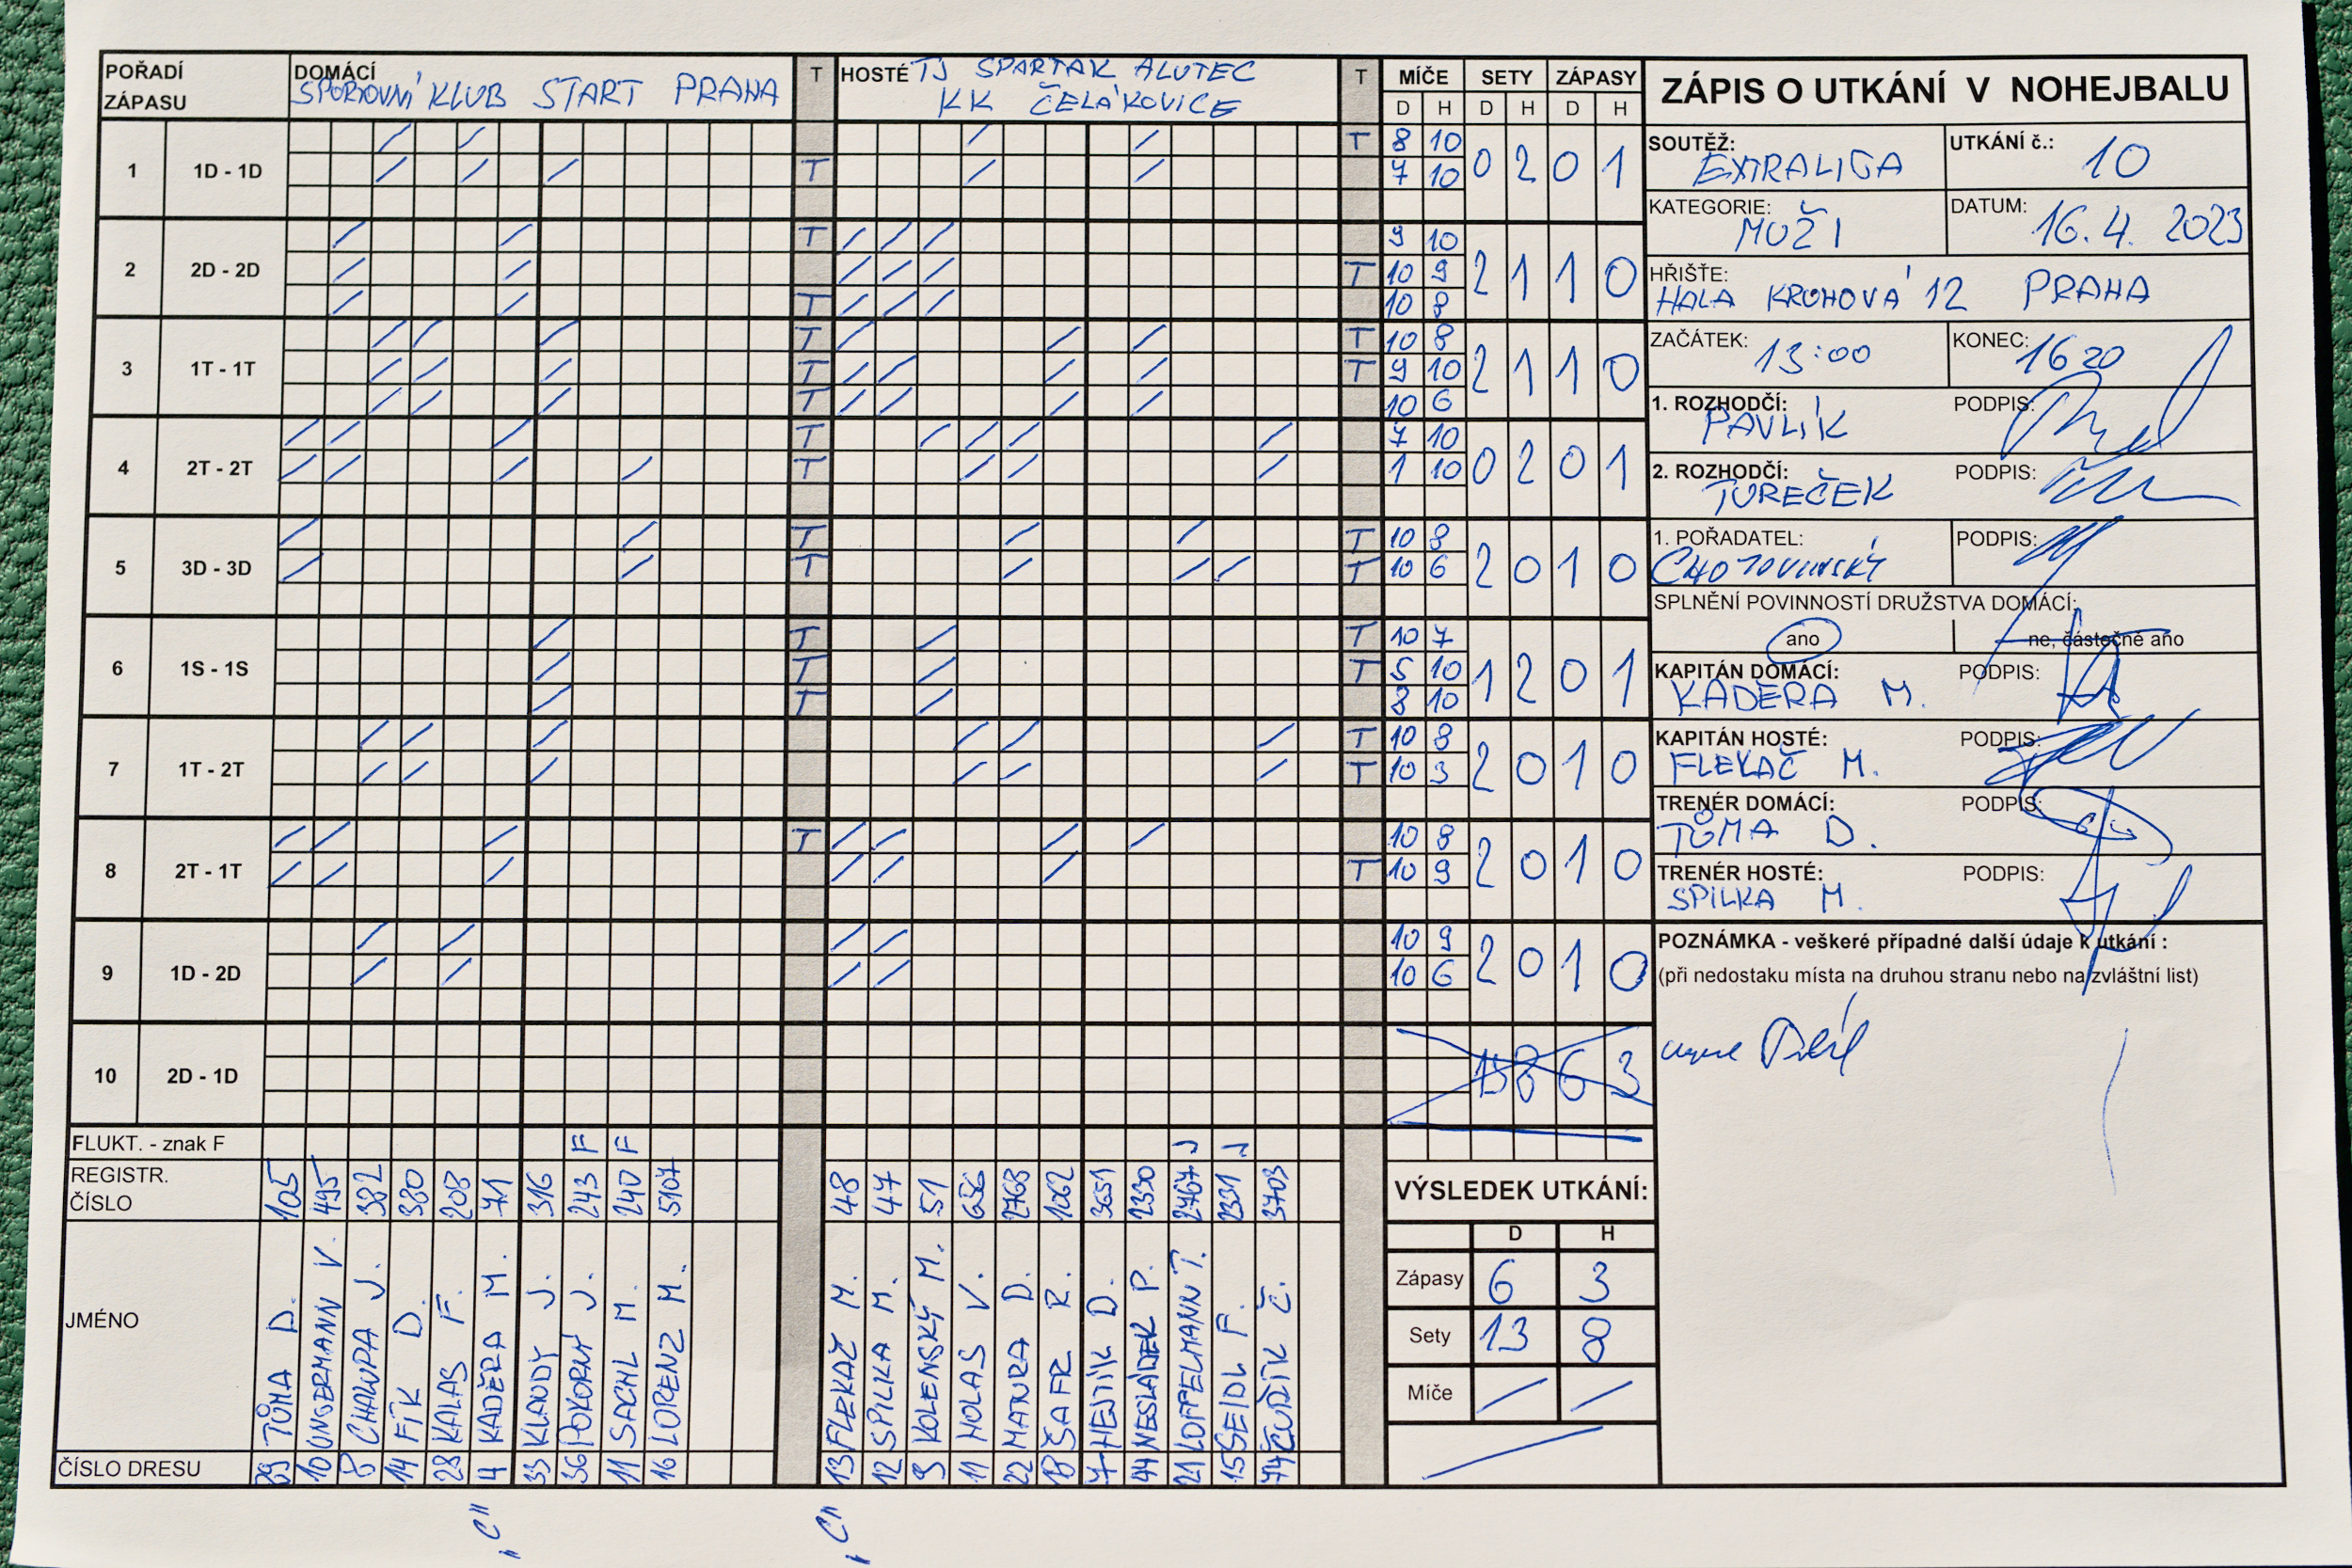 POŘADÍ ZÁPASU DOMÁCÍ SPORTOVNÍ KLUB START PRAHA T HOSTÉ TJ SPARTAK ALUTEC KK ČELÁKOVICE T MÍČE SETY ZÁPASY
D H D H D H
1 1D - 1D T 8 10 0 2 0 1
T 7 10
2 2D - 2D T 9 10 2 1 1 0
T 10 9
T 10 8
3 1T - 1T T T 10 8 2 1 1 0
T T 9 10
T 10 6
4 2T - 2T T 7 10 0 2 0 1
T 1 10
5 3D - 3D T T 10 8 2 0 1 0
T T 10 6
6 1S - 1S T T 10 7 1 2 0 1
T T 5 10
T 8 10
7 1T - 2T T 10 8 2 0 1 0
T 10 3
8 2T - 1T T 10 8 2 0 1 0
T 10 9
9 1D - 2D 10 9 2 0 1 0
10 6
10 2D - 1D 13 8 6 3
FLUKT. - znak F F F J J
REGISTR. ČÍSLO 105 495 382 380 208 71 316 243 240 5107 48 47 51 656 2768 1062 3651 2330 2767 2331 3703
JMÉNO TŮMA D. UNGERMANN V. CHALUPA J. FÍK D. KALAS F. KADĚRA M. KLAUDY J. POKORNÝ J. SACHL M. LORENZ M. FLEKAČ M. SPILKA M. KOLENSKÝ M. HOLAS V. MANURA D. ŠAFR R. HEJTÍK D. NESLÁDEK P. LOFFELMANN T. SEIDL F. ČUŘÍK Č.
ČÍSLO DRESU 89 10 8 14 28 4 33 36 11 16 13 12 9 11 22 18 7 44 21 15 74
"C" "C"
ZÁPIS O UTKÁNÍ V NOHEJBALU
SOUTĚŽ: EXTRALIGA UTKÁNÍ č.: 10
KATEGORIE: MUŽI DATUM: 16. 4. 2023
HŘIŠTĚ: HALA KRUHOVÁ 12 PRAHA
ZAČÁTEK: 13:00 KONEC: 16 20
1. ROZHODČÍ: PAVLÍK PODPIS:
2. ROZHODČÍ: TUREČEK PODPIS:
1. POŘADATEL: CHOTOVINSKÝ PODPIS:
SPLNĚNÍ POVINNOSTÍ DRUŽSTVA DOMÁCÍ:
ano ne, částečně ano
KAPITÁN DOMÁCÍ: KADERA M. PODPIS:
KAPITÁN HOSTÉ: FLEKAČ M. PODPIS:
TRENÉR DOMÁCÍ: TŮMA D. PODPIS:
TRENÉR HOSTÉ: SPILKA M. PODPIS:
POZNÁMKA - veškeré případné další údaje k utkání :
(při nedostaku místa na druhou stranu nebo na zvláštní list)
VÝSLEDEK UTKÁNÍ:
D H
Zápasy 6 3
Sety 13 8
Míče